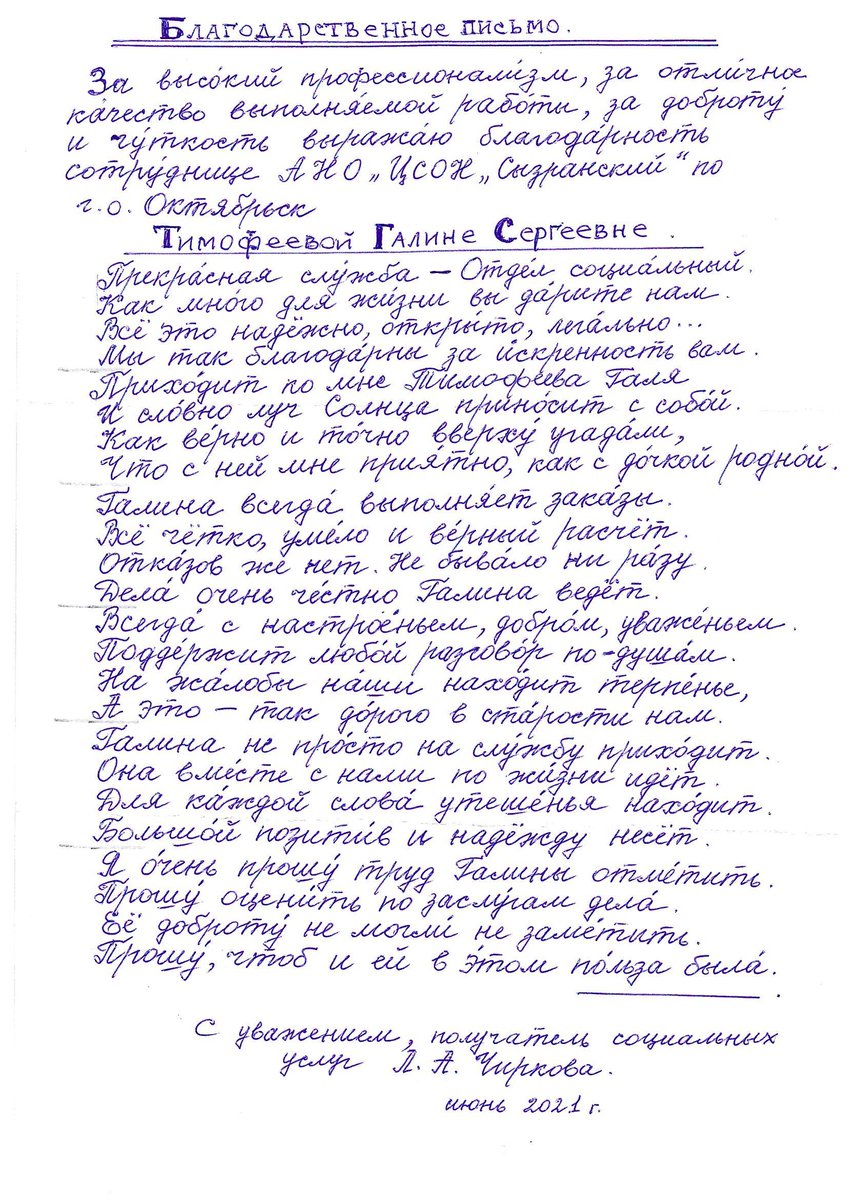 Благодарственное письмо.
За высо́кий профессионали́зм, за отли́чное
ка́чество выполня́емой рабо́ты, за доброту́
и чу́ткость выража́ю благода́рность
сотру́днице АНО „ЦСОН „Сызранский“ по
г.о. Октябрьск
Тимофеевой Галине Сергеевне.
Прекра́сная слу́жба – Отде́л социа́льный.
Как мно́го для жи́зни вы да́рите нам.
Всё э́то надёжно, откры́то, лега́льно...
Мы так благода́рны за и́скренность вам.
Прихо́дит ко мне Тимофе́ева Галя
И сло́вно луч Солнца прино́сит с собо́й.
Как ве́рно и то́чно вверху́ угада́ли,
Что с ней мне прия́тно, как с до́чкой родно́й.
Галина всегда́ выполня́ет зака́зы.
Всё чётко, уме́ло и ве́рный расчёт.
Отка́зов же нет. Не быва́ло ни ра́зу.
Дела́ очень че́стно Галина ведёт.
Всегда́ с настрое́ньем, добро́м, уваже́ньем.
Подде́ржит любо́й разгово́р по-душа́м.
На жа́лобы на́ши нахо́дит терпе́нье,
А э́то – так до́рого в ста́рости нам.
Галина не про́сто на слу́жбу прихо́дит.
Она вме́сте с нами по жи́зни идёт.
Для ка́ждой слова́ утеше́нья нахо́дит.
Большо́й позити́в и надёжду несёт.
Я о́чень прошу́ труд Галины отме́тить.
Прошу́ оцени́ть по заслу́гам дела́.
Её доброту́ не могли́ не заме́тить.
Прошу́, чтоб и ей в э́том по́льза была́.
С уважением, получатель социальных
услуг Л. А. Чиркова.
июнь 2021 г.